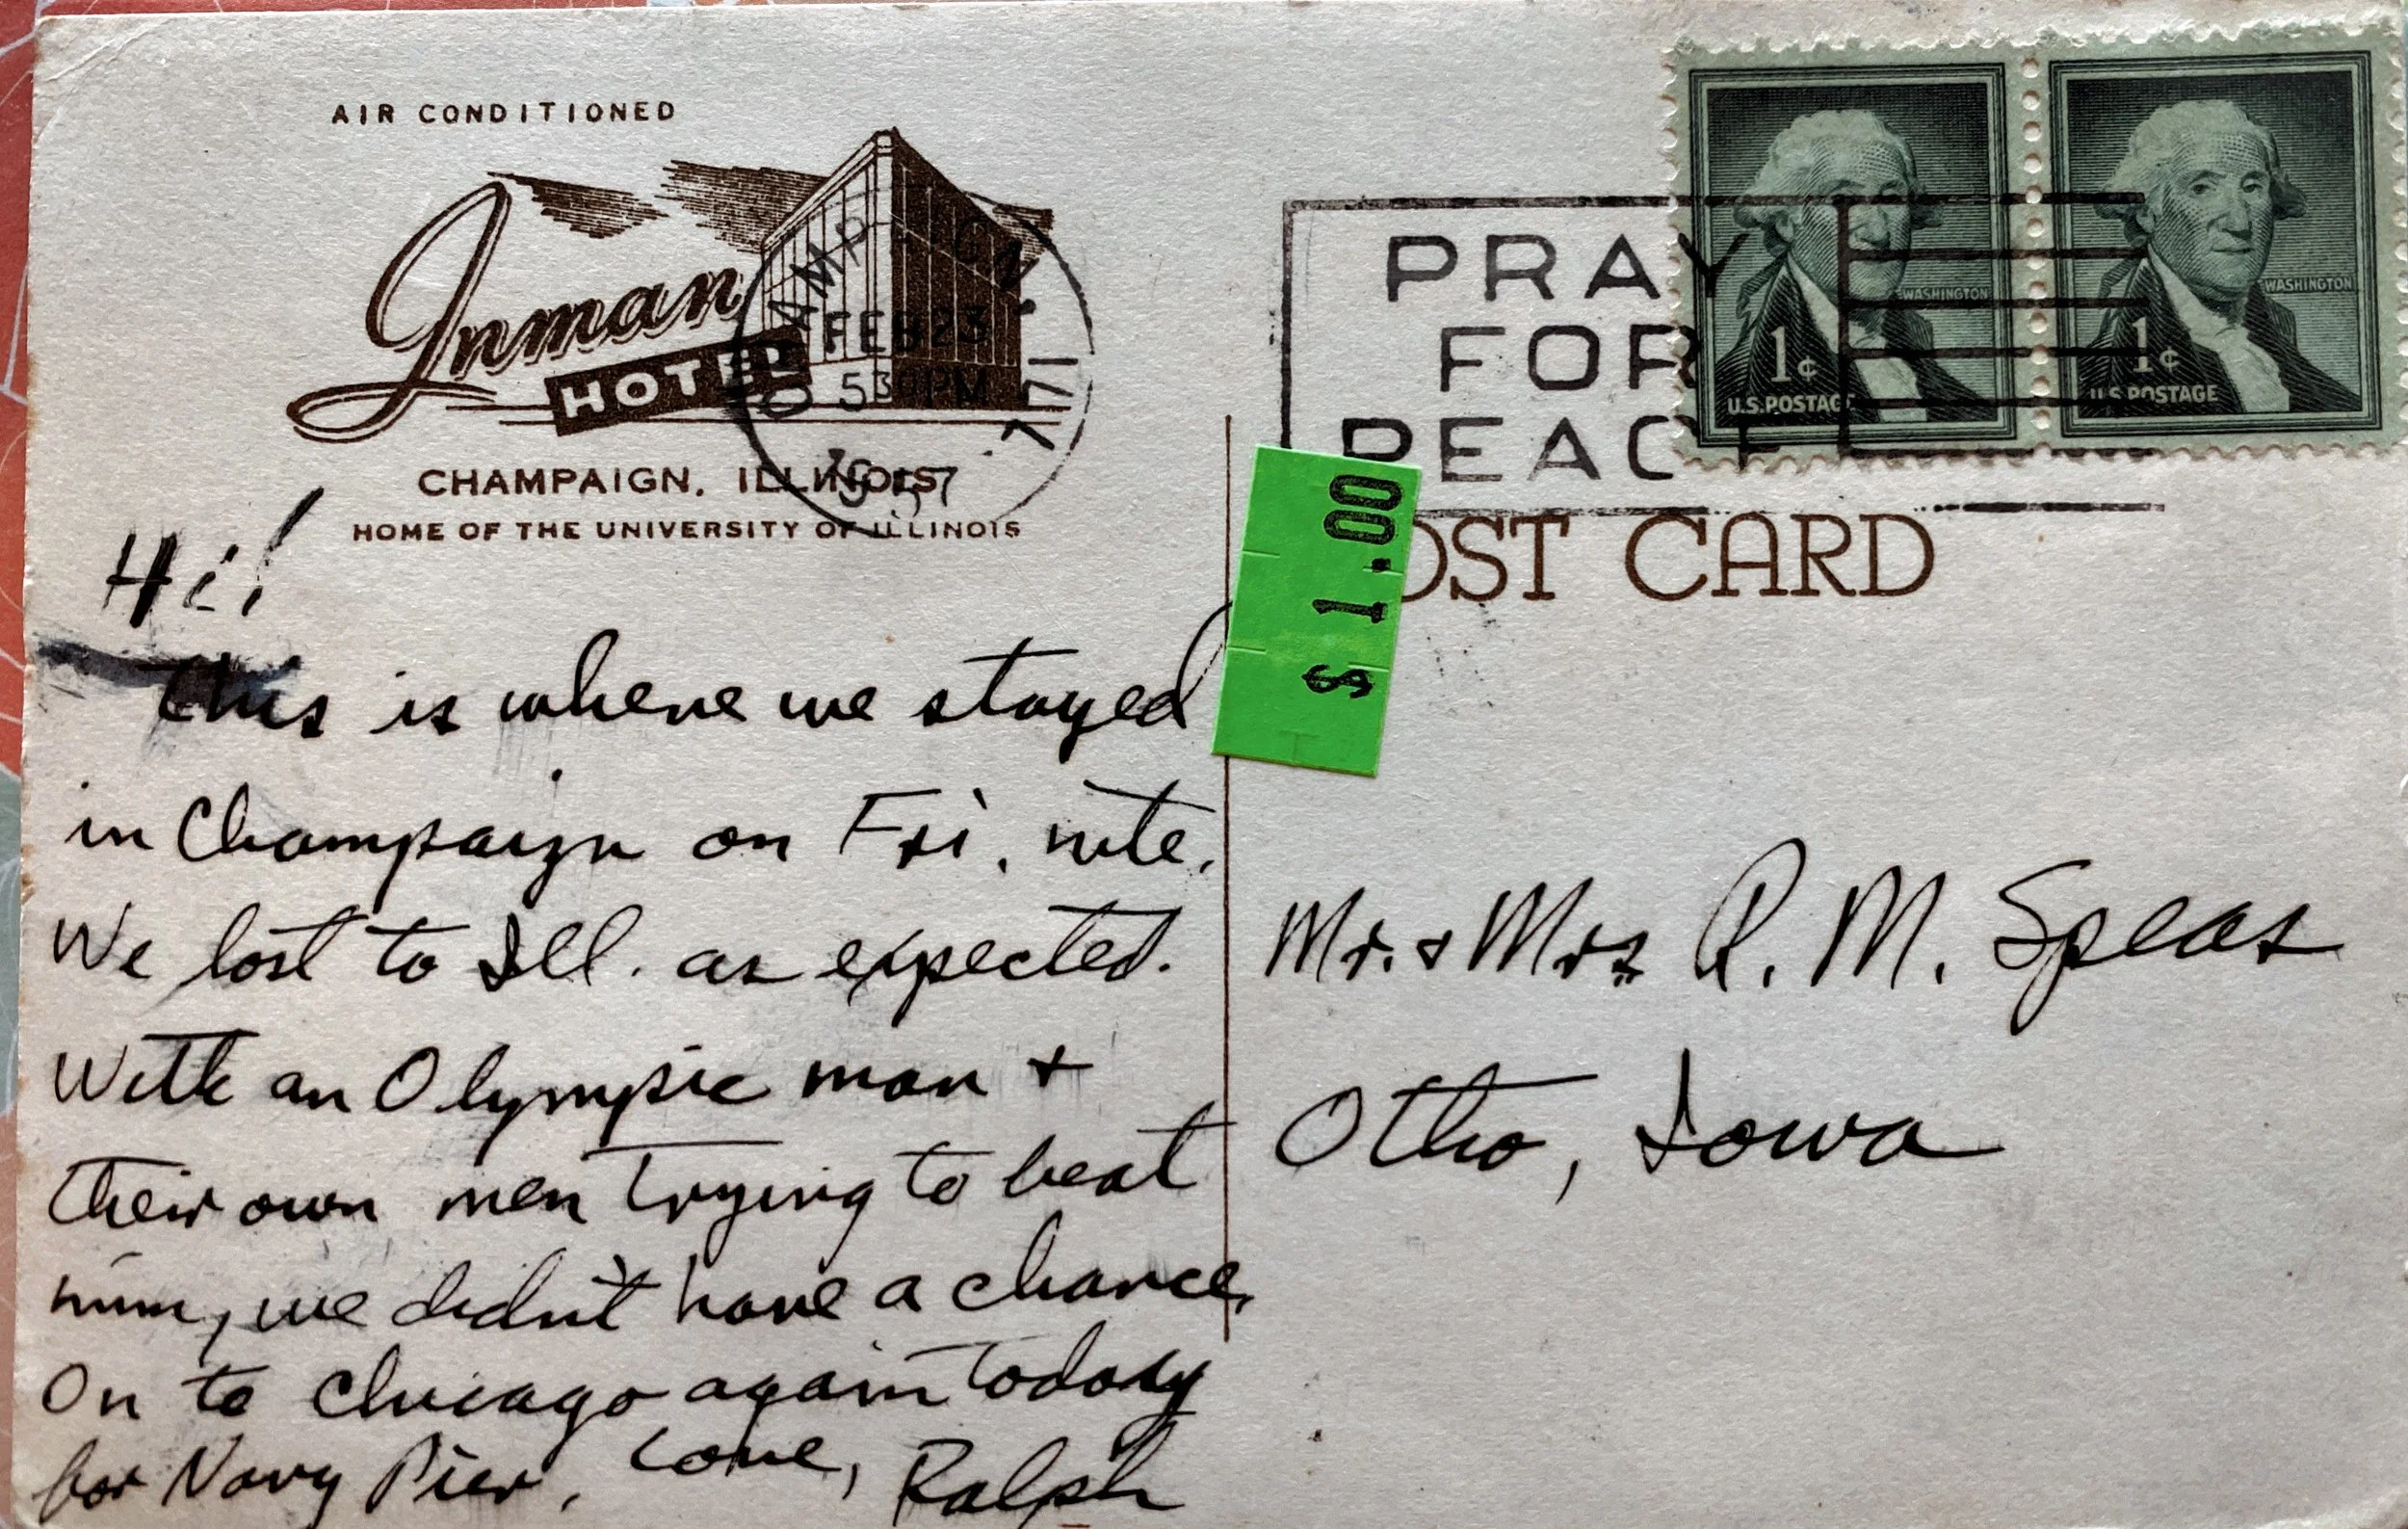 AIR CONDITIONED
Inman
HOTEL
CHAMPAIGN, ILLINOIS
HOME OF THE UNIVERSITY OF ILLINOIS
FEB 23
5 30 PM
1957
ILL.
PRAY
FOR
PEACE
WASHINGTON
1¢
U.S. POSTAGE
WASHINGTON
1¢
U.S. POSTAGE
$ 1.00
OST CARD
Hi!
This is where we stayed
in Champaign on Fri. nite.
We lost to Ill. as expected.
With an Olympic man +
their own men trying to beat
him, we didn't have a chance.
On to Chicago again today
for Navy Pier. Love, Ralph
Mr. & Mrs R. M. Speas
Otho, Iowa